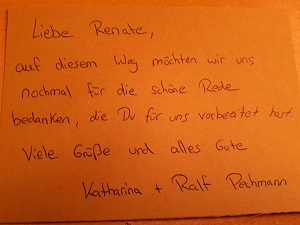 Liebe Renate,
auf diesem Weg möchten wir uns
nochmal für die schöne Rede
bedanken, die Du für uns vorbereitet hast.
Viele Grüße und alles Gute
Katharina + Ralf Pechmann